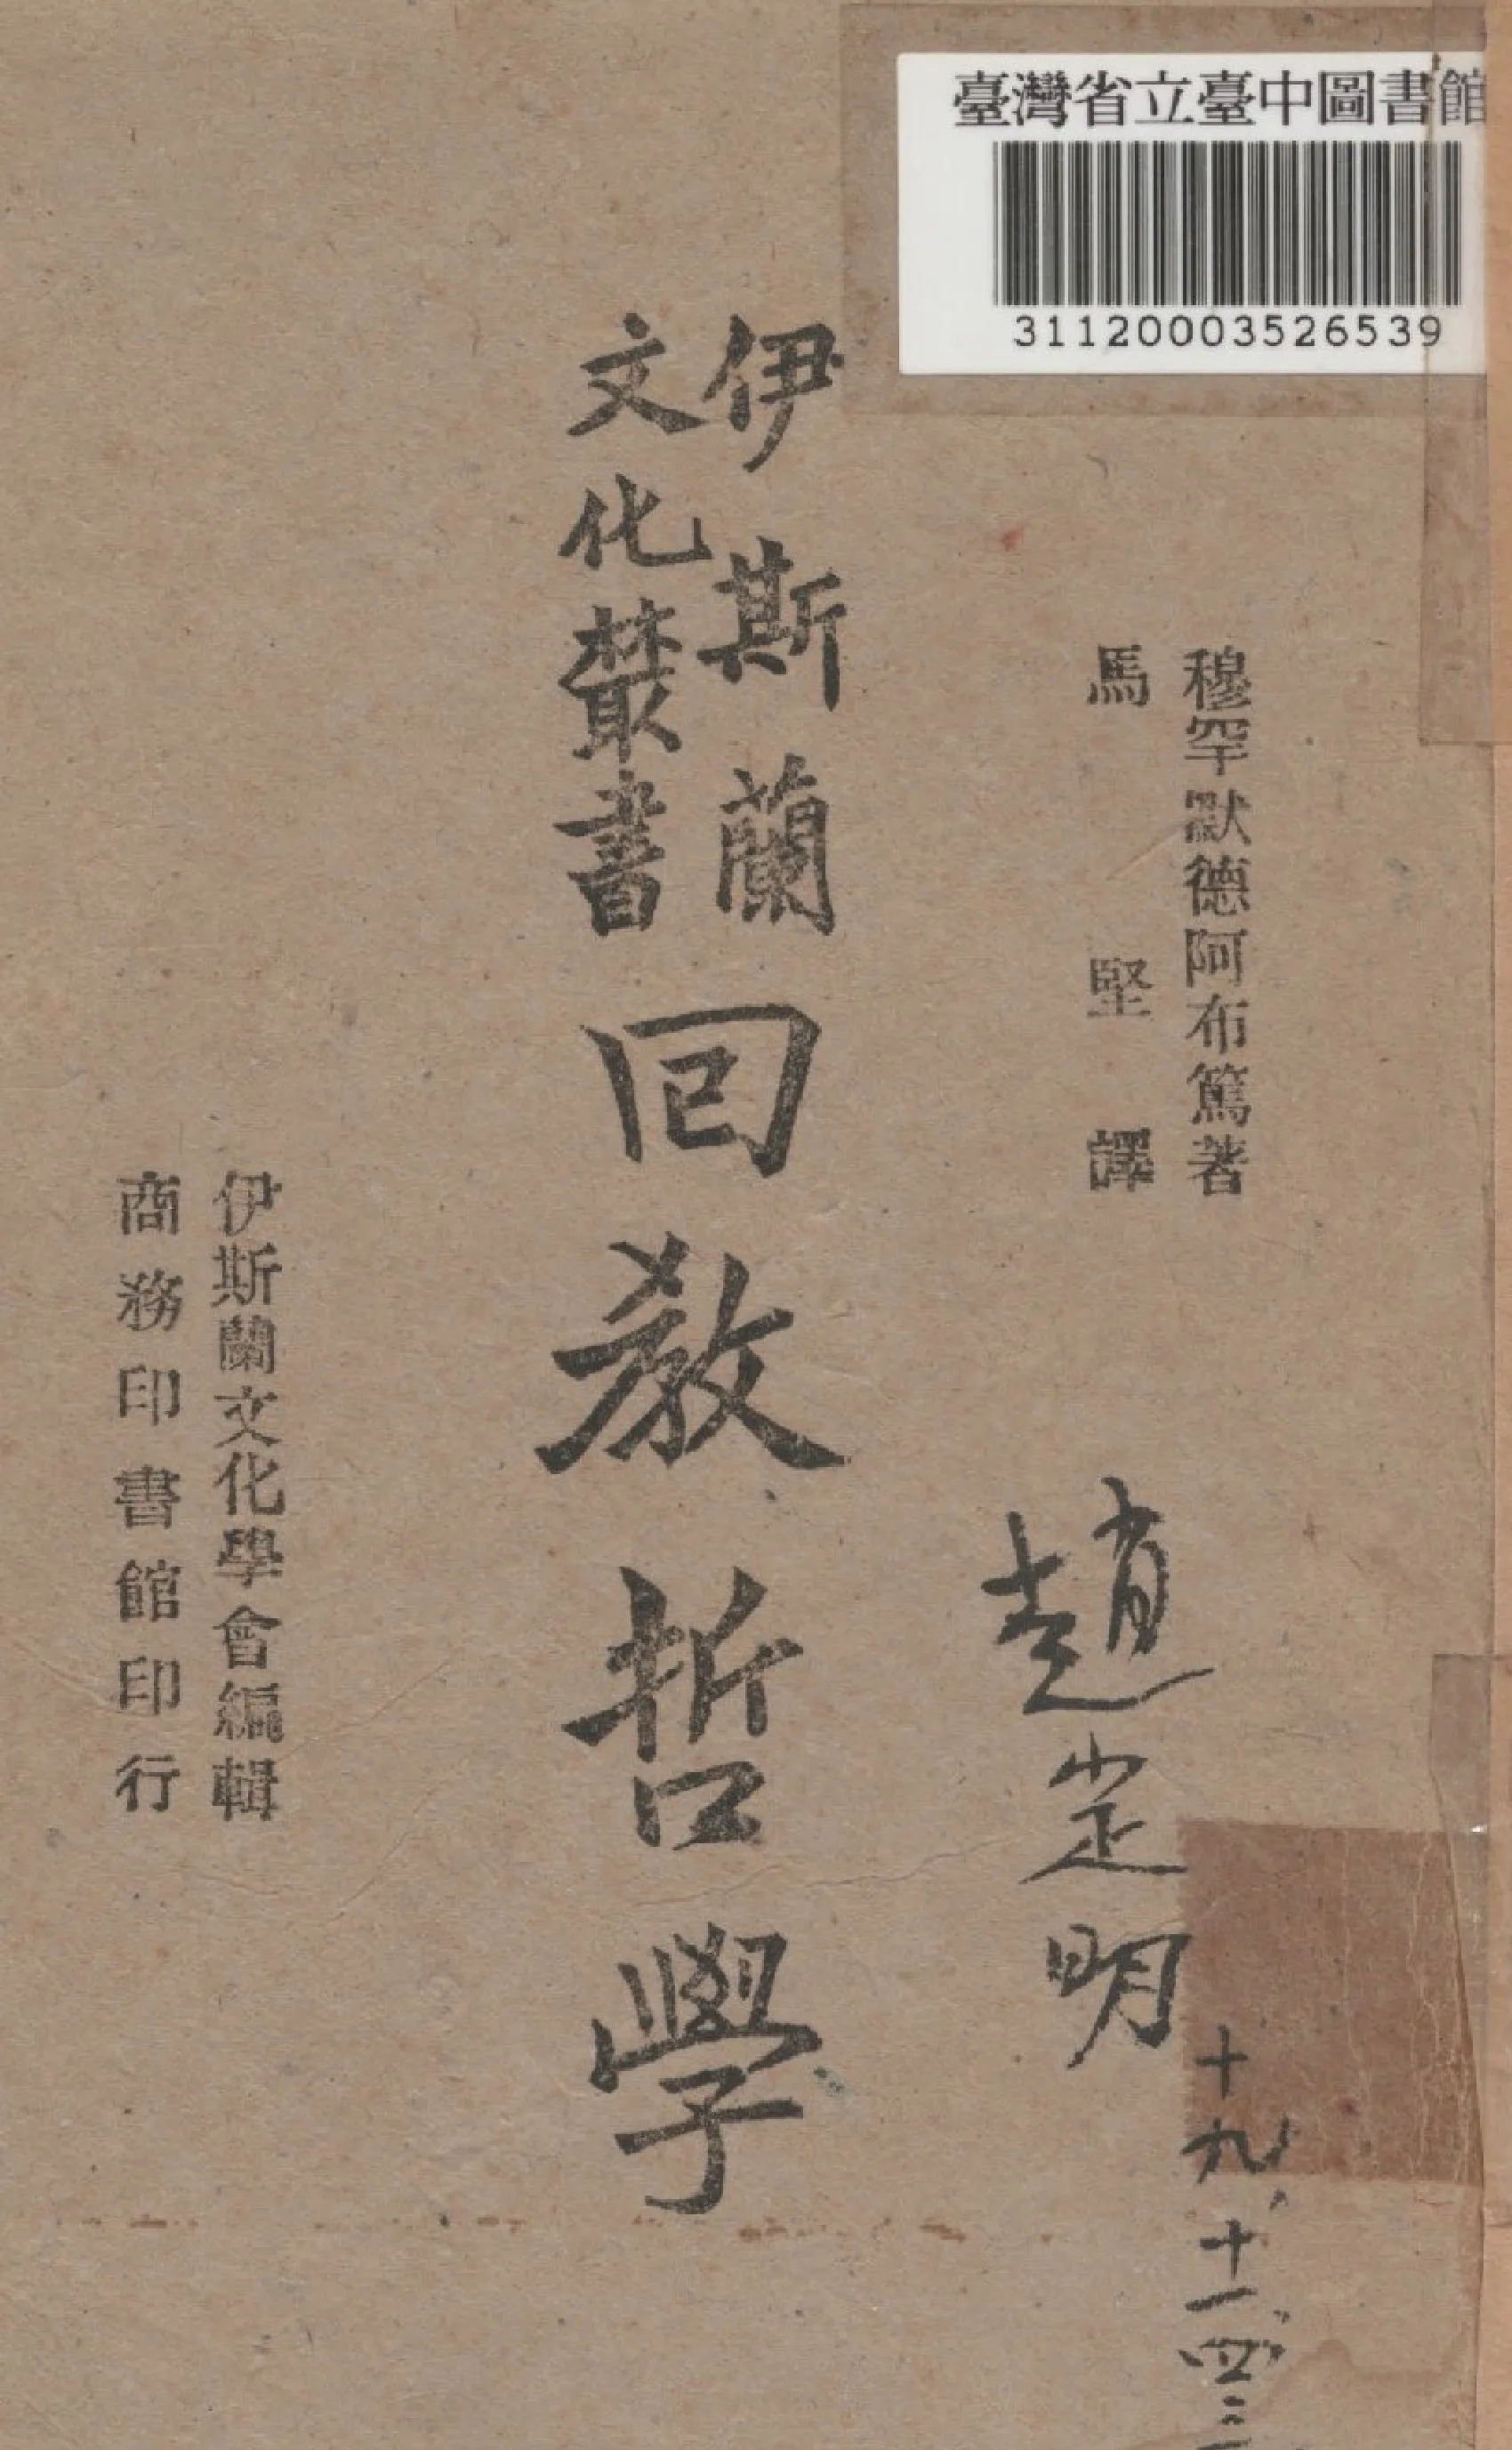 臺灣省立臺中圖書館
31120003526539
穆罕默德阿布篤著
馬堅譯
伊斯蘭
文化叢書
回教哲學
伊斯蘭文化學會編輯
商務印書館印行
趙明
十九、十一、四三